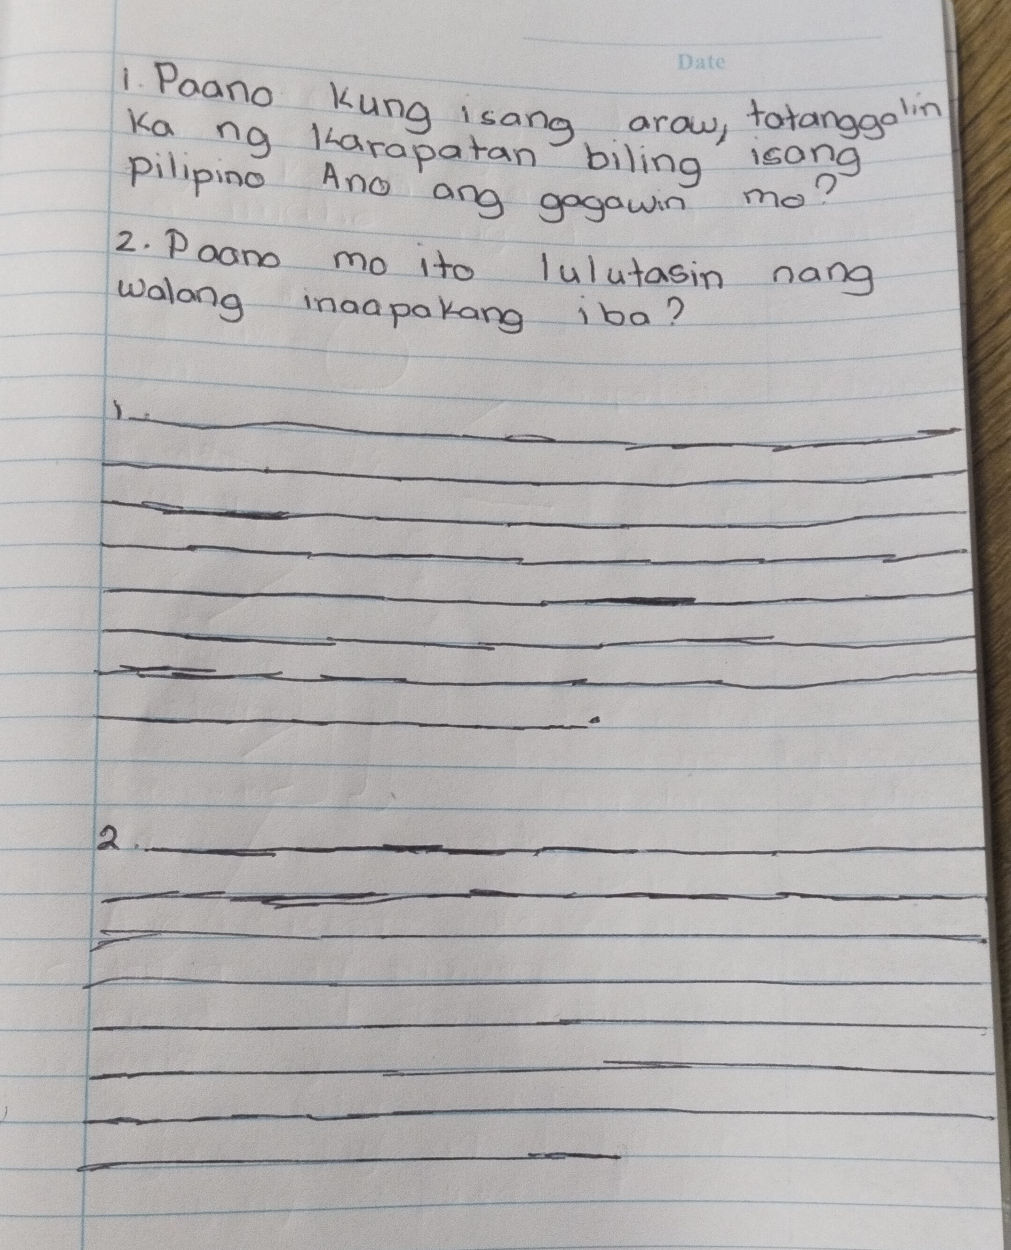 Date
1. Paano kung isang araw, tatanggalin
ka ng karapatan biling isang
pilipino Ano ang gagawin mo?
2. Paano mo ito lulutasin nang
walang inaapakang iba?
1.
2.